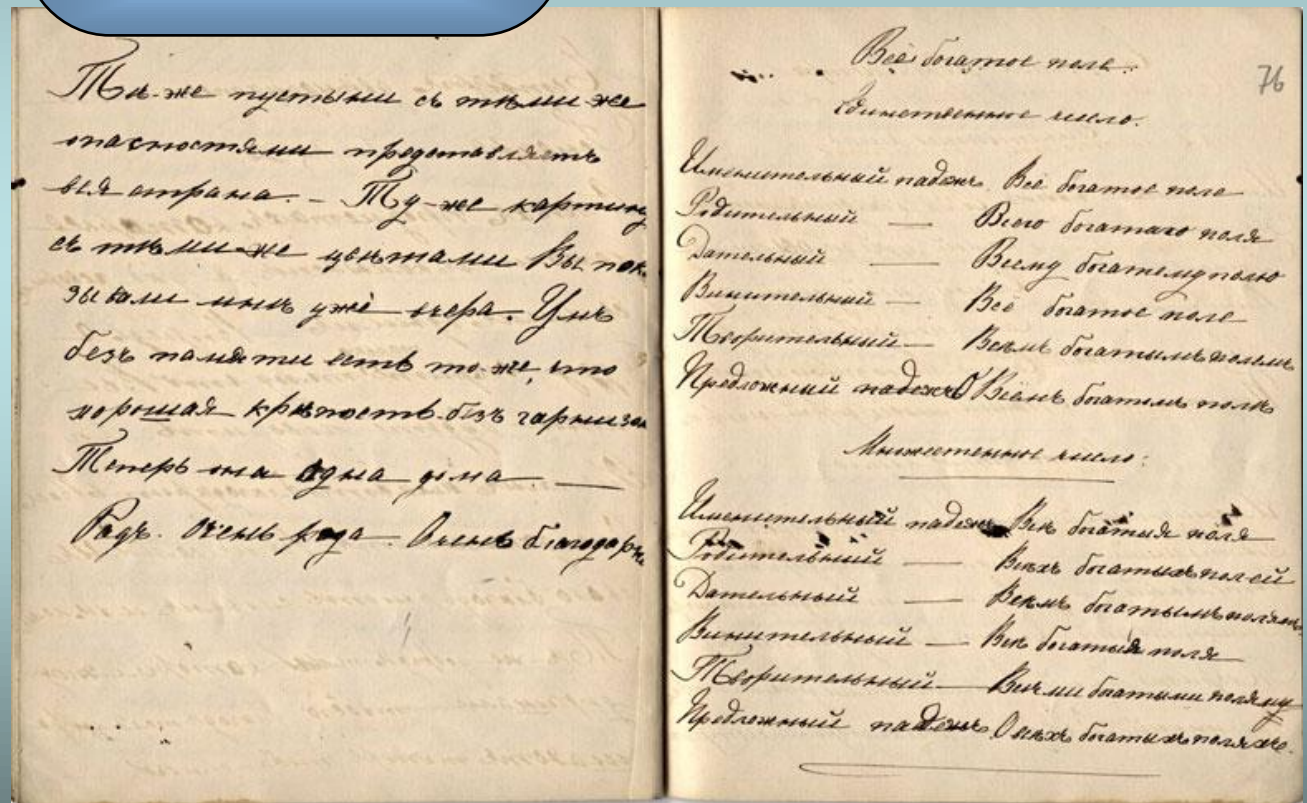 Тѣ-же пустыни съ тѣми-же
опасностями представляетъ
вся страна. – Ту-же картину
съ тѣми-же цвѣтами Вы пок
зывали мнѣ уже вчера. Умъ
безъ памяти есть то-же, что
хорошая крѣпость безъ гарнизон
Теперь она одна дома. —
Радъ. Очень рада. Очень благодарн
76
Всё богатое поле.
Единственное число.
Именительный падежъ Все богатое поле
Родительный — Всего богатаго поля
Дательный — Всему богатому полю
Винительный — Всё богатое поле
Творительный — Всѣмъ богатымъ полемъ
Предложный падежъ О Всёмъ богатомъ полѣ
Множественное число:
Именительный падежъ Всѣ богатыя поля
Родительный — Всѣхъ богатыхъ полей
Дательный — Всѣмъ богатымъ полямъ
Винительный — Всѣ богатыя поля
Творительный — Всѣми богатыми полями
Предложный падежъ О всѣхъ богатыхъ поляхъ.